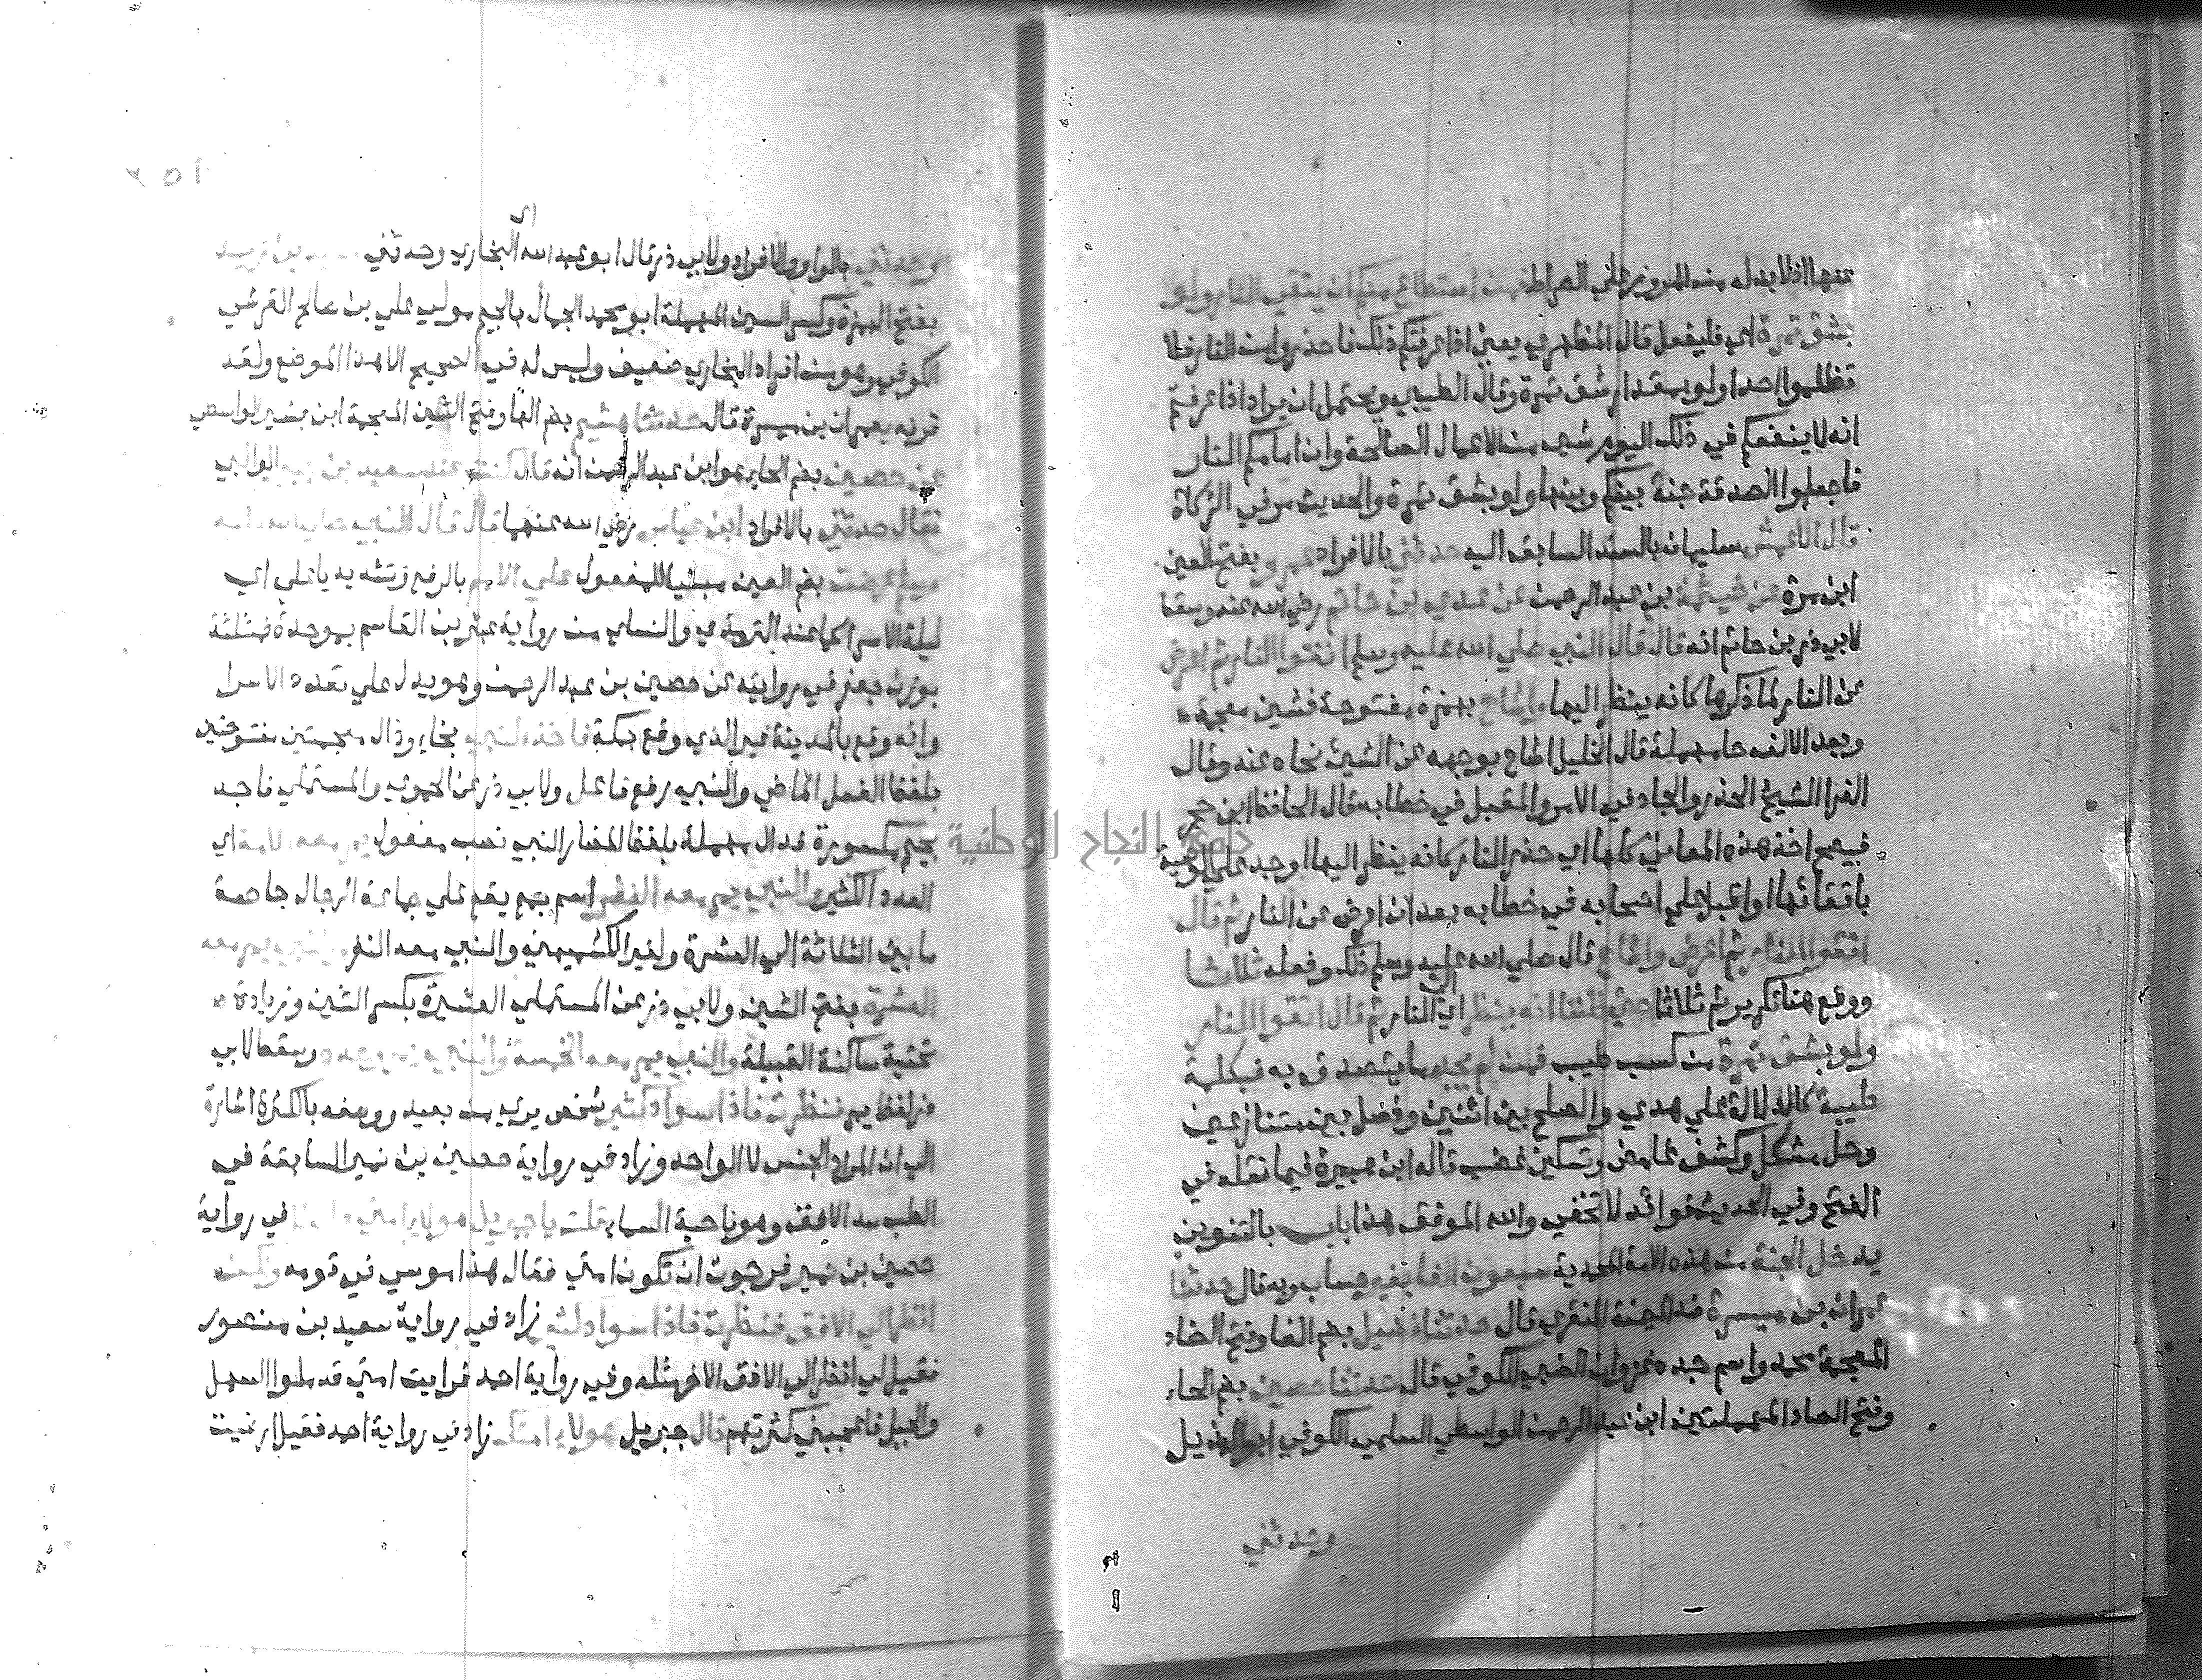 عنها اذ لا بد له من المرور علي الصراط فمن استطاع منكم ان يتقي النار ولو
بشق تمرة اي فليفعل قال المظهري يعني اذا عرفتم ذلك فاحذروا من النار فلا
تظلموا احدا ولو بمقدار شق تمرة وقال الطيبي ويحتمل ان يراد اذا عرفتم
انه لا ينفعكم في ذلك اليوم شي من الاعمال الصالحة وان امامكم النار
فاجعلوا الصدقة جنة بينكم وبينها ولو بشق تمرة والحديث مر في الزكاة
قال الاعمش سليمان بالسند السابق اليه حدثني بالافراد عمرو بفتح العين
ابن مرة عن خيثمة بن عبد الرحمن عن عدي بن حاتم رضي الله عنه وسقط
لابي ذر بن حاتم انه قال قال النبي صلي الله عليه وسلم اتقوا النار ثم اعرض
عن النار لما ذكرها كانه ينظر اليها واشاح بهمزة مفتوحة فشين معجمة
وبعد الالف حا مهملة قال الخليل اشاح بوجهه عن الشي نحاه عنه وقال
الفرا الشيح الحذر والجاد في الامر والمقبل في خطابه قال الحافظ ابن حجر
فيصح احد هذه المعاني كلها اي حذر النار كانه ينظر اليها او جد علي الوصية
باتقائها او اقبل علي اصحابه في خطابه بعد ان اعرض عن النار ثم قال
اتقوا النار ثم اعرض واشاح قال صلي الله عليه وسلم ذلك وفعله ثلاثا
ووقع هنا تكرير ثم ثلاثا حتي ظننا انه ينظر الي النار ثم قال اتقوا النار
ولو بشق تمرة من كسب طيب فمن لم يجد ما يتصدق به فبكلمة
طيبة كالدلالة علي هدي والصلح بين اثنين وفصل بين متنازعين
وحل مشكل وكشف غامض وتسكين غضب قاله ابن هبيرة فيما نقله في
الفتح وفي الحديث فوائد لا تخفي والله الموفق هذا باب بالتنوين
يدخل الجنة من هذه الامة المحمدية سبعون الفا بغير حساب وبه قال حدثنا
عمران بن ميسرة ضد الميمنة المنقري قال حدثنا ابن فضيل بضم الفا وفتح الضاد
المعجمة محمد واسم جده غزوان الضبي الكوفي قال حدثنا حصين بضم الحاء
وفتح الصاد المهملتين ابن عبد الرحمن الواسطي السلمي الكوفي ابو الهذيل
وحدثني
١٥٢
وحدثني بالواو والافراد ولابي ذر قال ابو عبد الله اي البخاري وحدثني اسيد بن زيد
بفتح الهمزة وكسر السين المهملة ابو محمد الجمال بالجيم مولي علي بن صالح القرشي
الكوفي وهو من افراد البخاري ضعيف وليس له في الصحيح الا هذا الموضع ولقد
قرنه بعمران بن ميسرة قال حدثنا هشيم بضم الها وفتح الشين المعجمة ابن بشير الواسطي
عن حصين بضم الحاء هو ابن عبد الرحمن انه قال كنت عند سعيد بن جبير الوالبي
فقال حدثني بالافراد ابن عباس رضي الله عنهما قال قال النبي صلي الله عليه
وسلم عرضت بضم العين مبنيا للمفعول علي الامم بالرفع وتشديد يا علي اي
ليلة الاسرا كما عند الترمذي والنساي من رواية عبثر بن القاسم بموحدة فمثلثة
بوزن جعفر في روايته عن حصين بن عبد الرحمن وهو يدل علي تعدد الاسرا
وانه وقع بالمدينة غير الذي وقع بمكة فاخذ النبي بخاء وذال معجمتين مفتوحتين
بلفظ الفعل الماضي والنبي رفع فاعل ولابي ذر عن الحموي والمستملي فاجد
بجيم مكسورة فدال مهملة بلفظ المضارع النبي نصب مفعول يمر معه الامة اي
العدد الكثير والنبي يمر معه النفر اسم جمع يقع علي جماعة الرجال خاصة
ما بين الثلاثة الي العشرة ولغير الكشميهني والنبي معه النفر والنبي يمر معه
العشرة بفتح الشين ولابي ذر عن المستملي العشيرة بكسر الشين وزيادة
تحتية ساكنة القبيلة والنبي يمر معه الخمسة والنبي يمر وحده وسقط لابي
ذر لفظ يمر فنظرت فاذا سواد كثير شخص يري من بعيد ووصفه بالكثرة اشارة
الي ان المراد الجنس لا الواحد وزاد في رواية حصين بن نمير السابقة في
الطب سد الافق وهو ناحية السماء قلت يا جبريل هولاء امتي قال لا في رواية
حصين بن نمير فرجوت ان تكون امتي فقال هذا موسي في قومه ولكن
انظر الي الافق فنظرت فاذا سواد كثير زاد في رواية سعيد بن منصور
فقيل لي انظر الي الافق الاخر مثله وفي رواية احمد فرايت امتي قد ملوا السهل
والجبل فاعجبني كثرتهم قال جبريل هولاء امتك زاد في رواية احمد فقيل ارضيت
جامعة النجاح الوطنية